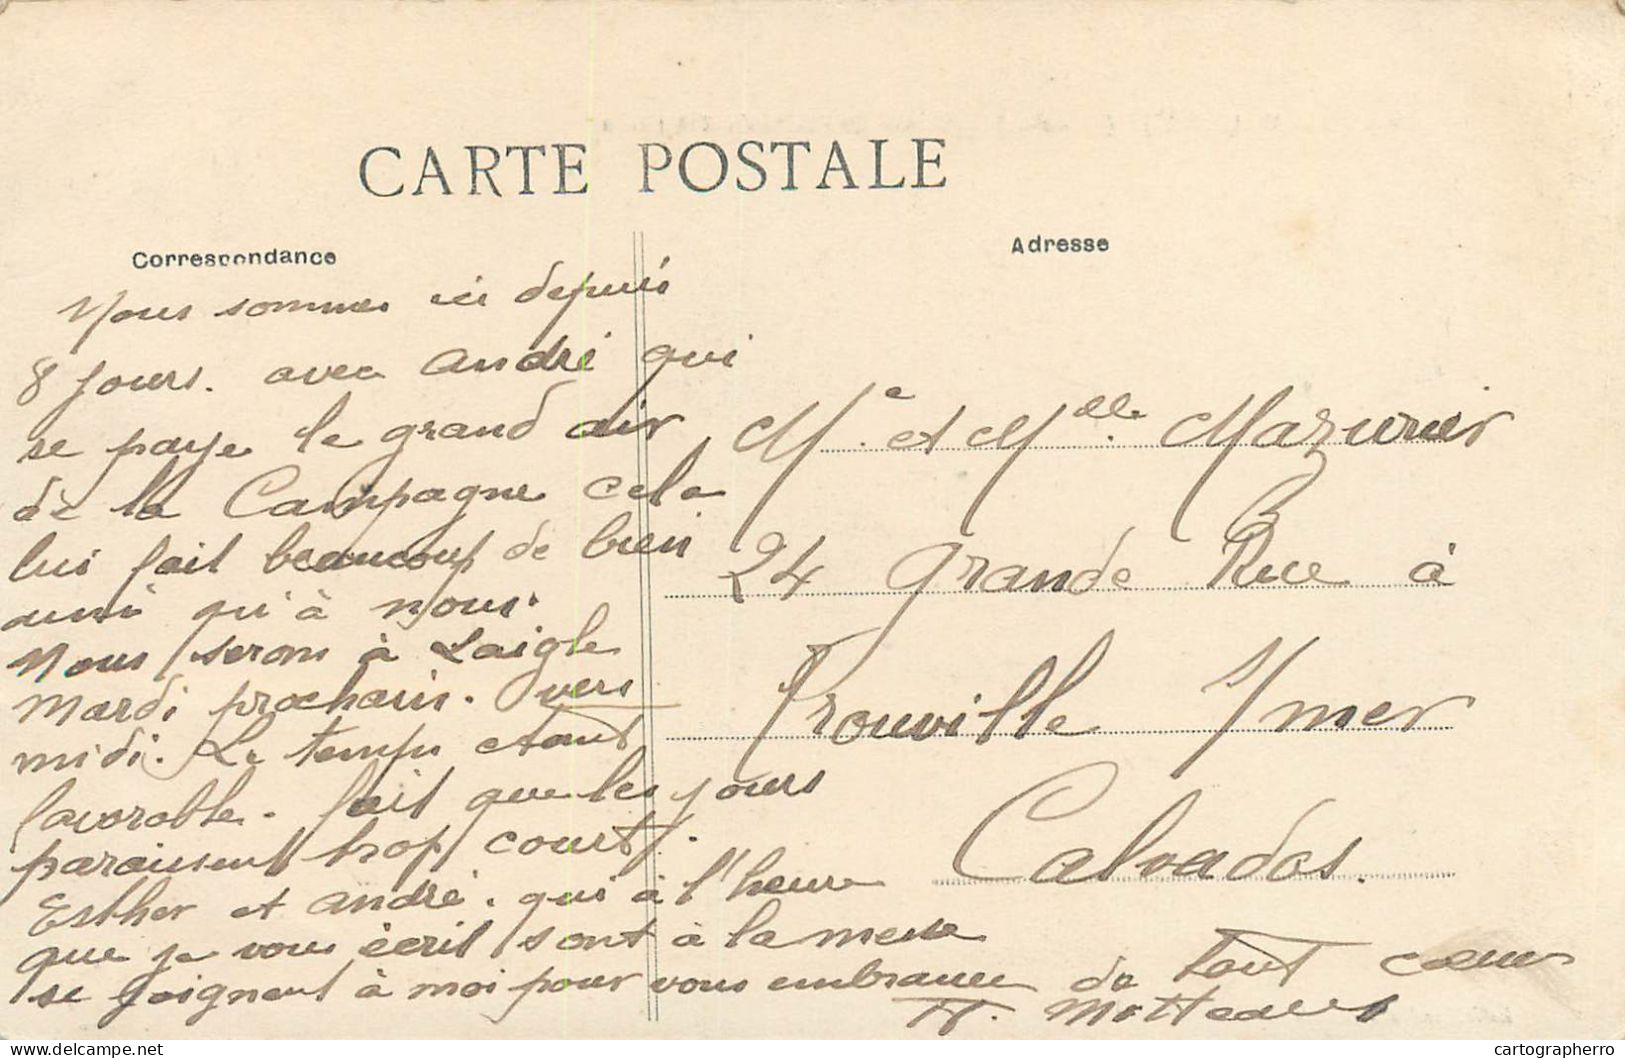 CARTE POSTALE
Correspondance
Adresse
Nous sommes ici depuis
8 jours. avec andré qui
se paye le grand air
de la Campagne cela
lui fait beaucoup de bien
ainsi qu'à nous.
Nous serons à Laigle
mardi prochain. vers
midi. Le temps etant
favorable. fait que les jours
paraissent trop courts.
Esther et andré. qui à l'heure
que je vous écrit sont à la messe
se joignent à moi pour vous embrasser de tout coeur
Me et Melle Mazurier
24 grande Rue à
Trouville s/mer
Calvados.
cartographerro